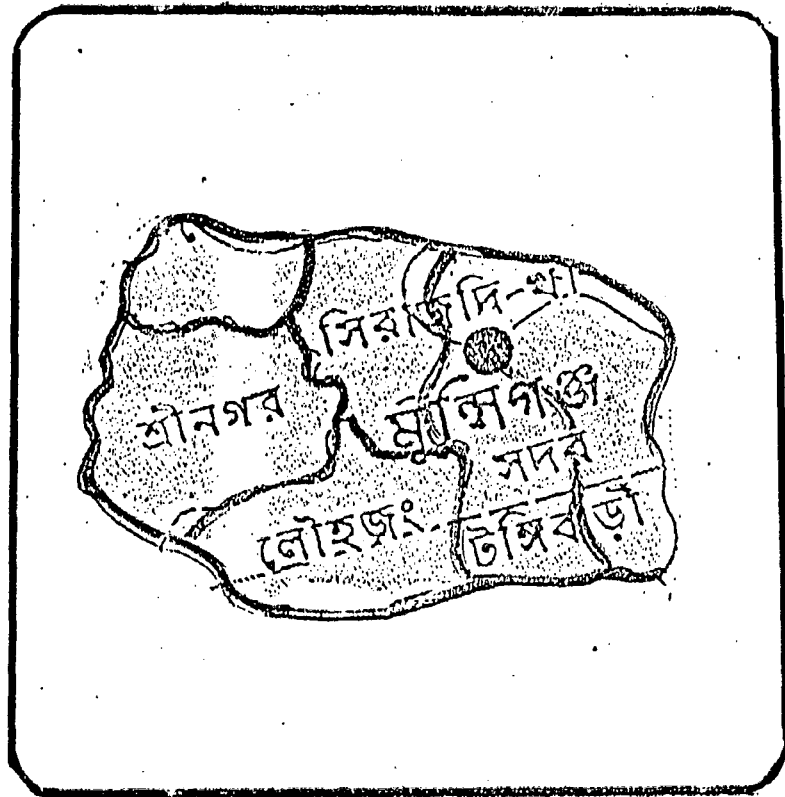 সিরাজদি-খা
শ্রীনগর
মুন্সিগঞ্জ
সদর
লৌহজং
টঙ্গিবাড়ী